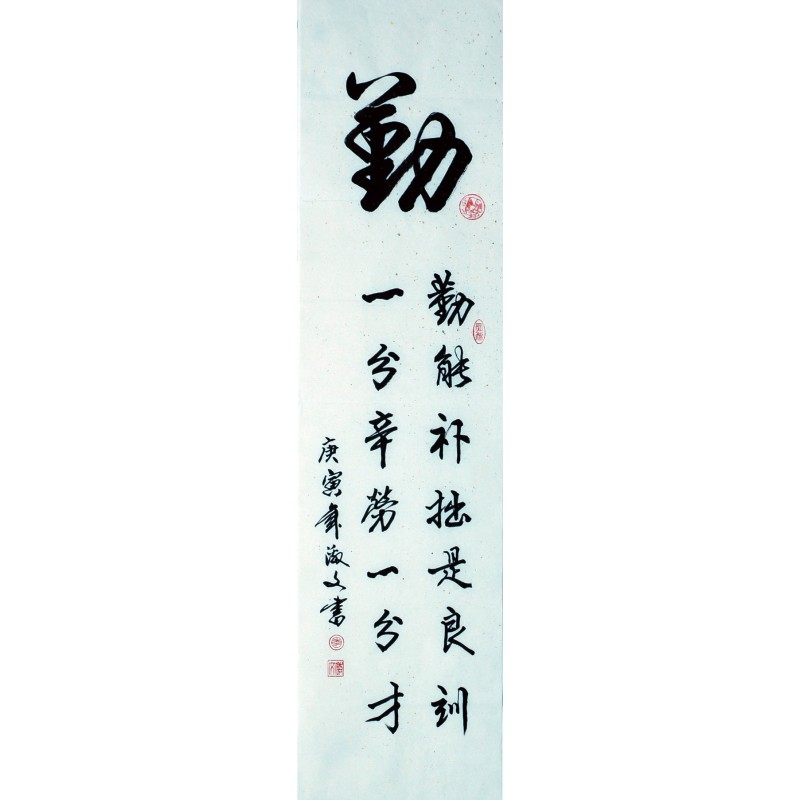 勤
勤能补拙是良訓
一分辛勞一分才
庚寅年淑文書